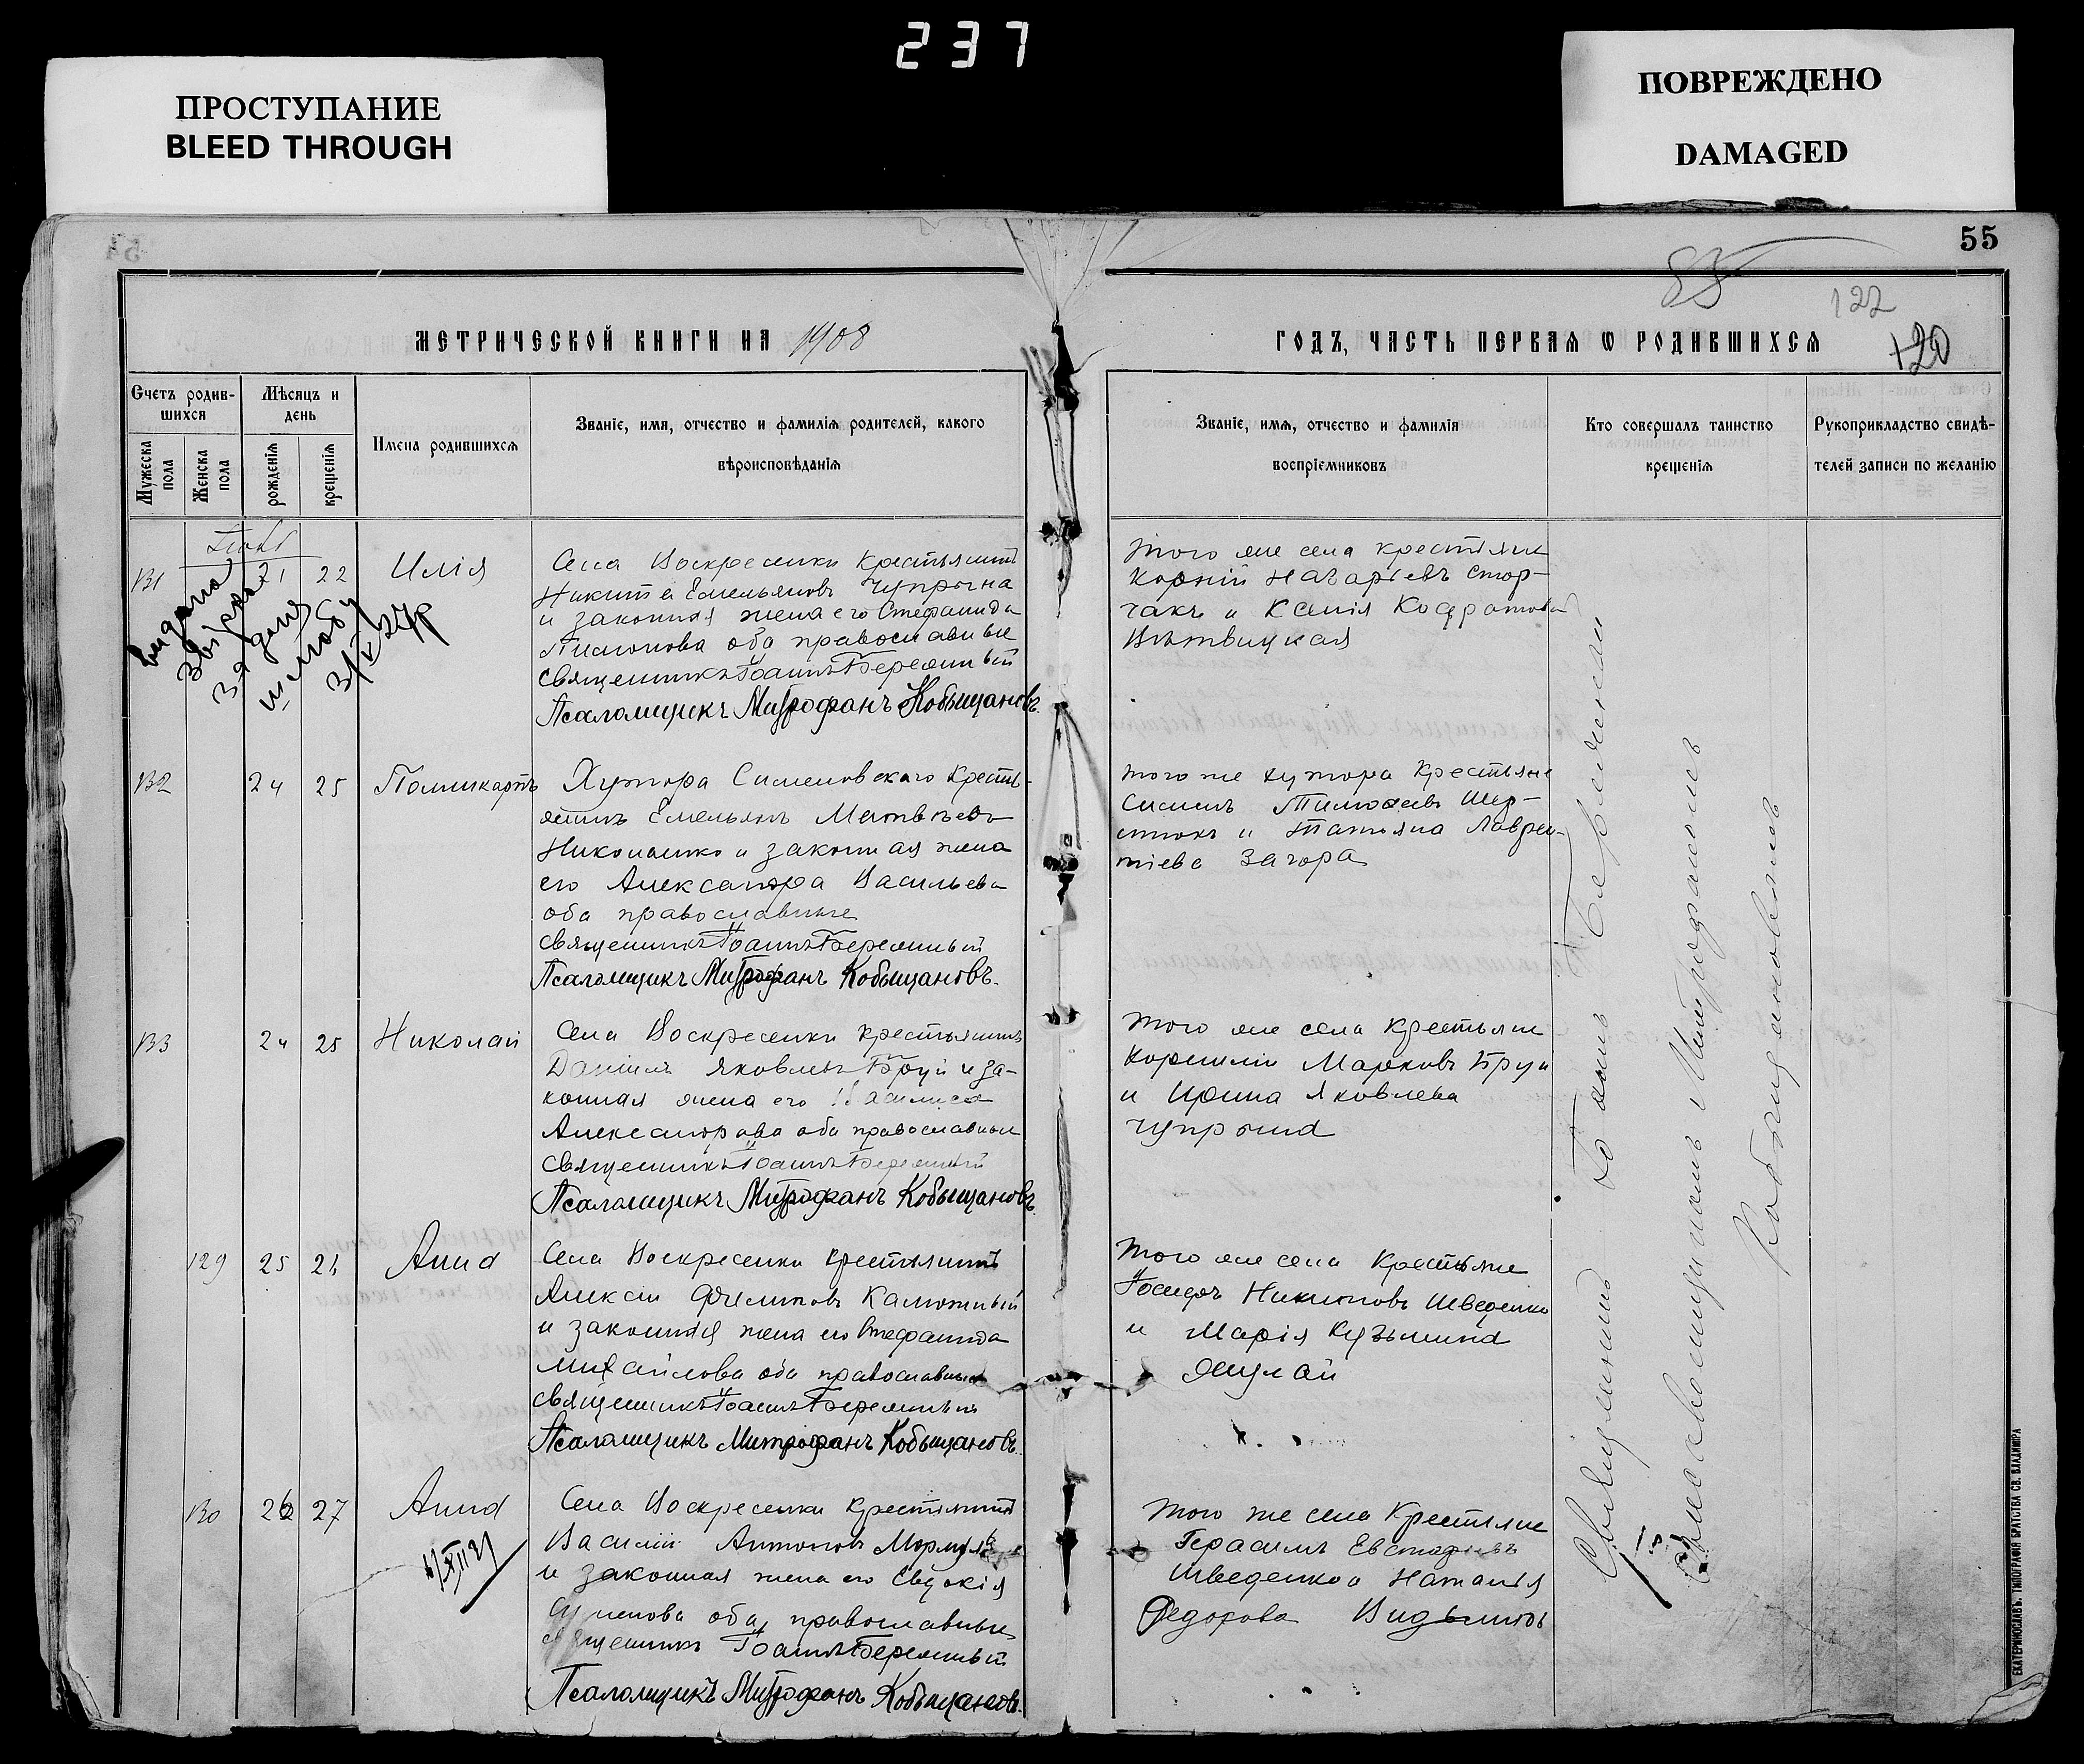 237
ПРОСТУПАНИЕ
BLEED THROUGH
ПОВРЕЖДЕНО
DAMAGED
55
122
120
МЕТРИЧЕСКОЙ КНИГИ НА 1908
ГОДЪ, ЧАСТЬ ПЕРВАЯ Ѡ РОДИВШИХСЯ
Счетъ родив-
шихся
Мужеска пола
Женска пола
Мѣсяцъ и
день
рожденія
крещенія
Имена родившихся
Званіе, имя, отчество и фамилія родителей, какого
вѣроисповѣданія
Званіе, имя, отчество и фамилія
воспріемниковъ
Кто совершалъ таинство
крещенія
Рукоприкладство свидѣ-
телей записи по желанію
131 21 22 Илія
Села Воскресенки крестьянинъ
Никита Емельяновъ Чупрына
и законная жена его Стефанида
оба православные
Священникъ Іоаннъ Бережный
Псаломщикъ Митрофанъ Кобыщановъ.
того же села крестьяне
Корній Назаріевъ Стор-
чакъ и Ксенія
132 24 25 Поликарпъ
Хутора Сименовскаго кресть-
янинъ Емельянъ Матвѣевъ
Николенко и законная жена
его Александра Васильева
оба православные
Священникъ Іоаннъ Бережный
Псаломщикъ Митрофанъ Кобыщановъ.
того же хутора крестьяне
Тимофеевъ Шер-
и Татьяна Лаврен-
тіева Загора
133 24 25 Николай
Села Воскресенки крестьянинъ
Даніилъ Яковлевъ Бруй и за-
конная жена его
Александрова оба православные
Священникъ Іоаннъ Бережный
Псаломщикъ Митрофанъ Кобыщановъ.
того же села крестьяне
Корнилій Марковъ Бруй
и Ирина Яковлева
Чупрына
129 25 26 Анна
Села Воскресенки крестьянинъ
Алексій Филиповъ Калюжный
и законная жена его Стефанида
Михайлова оба православные
Священникъ Іоаннъ Бережный
Псаломщикъ Митрофанъ Кобыщановъ.
того же села крестьяне
Іосифъ Никитовъ Шведенко
и Марія Кузьмина
130 26 27 Анна
Села Воскресенки крестьянинъ
Василій Антоновъ
и законная жена его Евдокія
оба православные
Священникъ Іоаннъ Бережный
Псаломщикъ Митрофанъ Кобыщановъ.
того же села крестьяне
Герасимъ
Шведенко и Наталія
Федорова
Священникъ Іоаннъ Бережный
съ псаломщикомъ Митрофаномъ
Кобыщановымъ
ЕКАТЕРИНОСЛАВЪ. ТИПОГРАФІЯ БРАТСТВА СВ. ВЛАДИМІРА